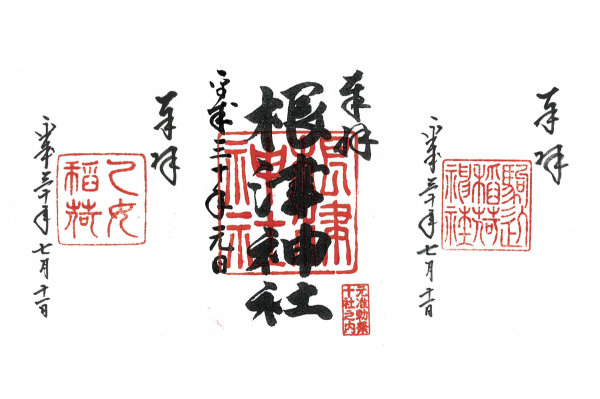 奉拝
駒込
稲荷
神社
平成三十年七月十一日
奉拝
根津神社
平成三十年元日
元准勅祭
十社之内
奉拝
乙女
稲荷
平成三十年七月十一日